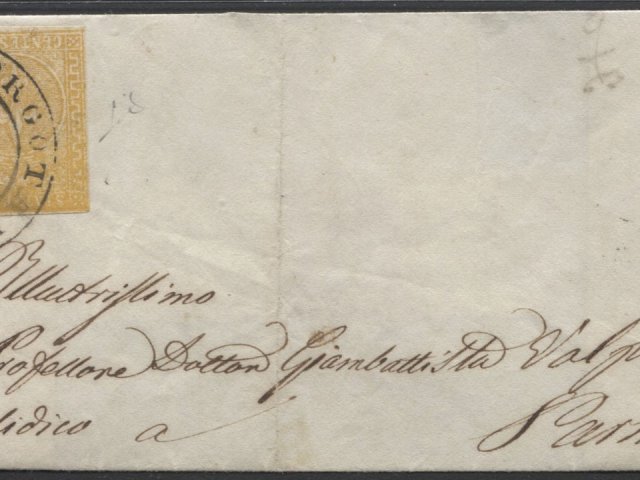 CENTES
ORGOT
Illustrissimo
Professore Dottor Giambattista Valp
lidico a Parm